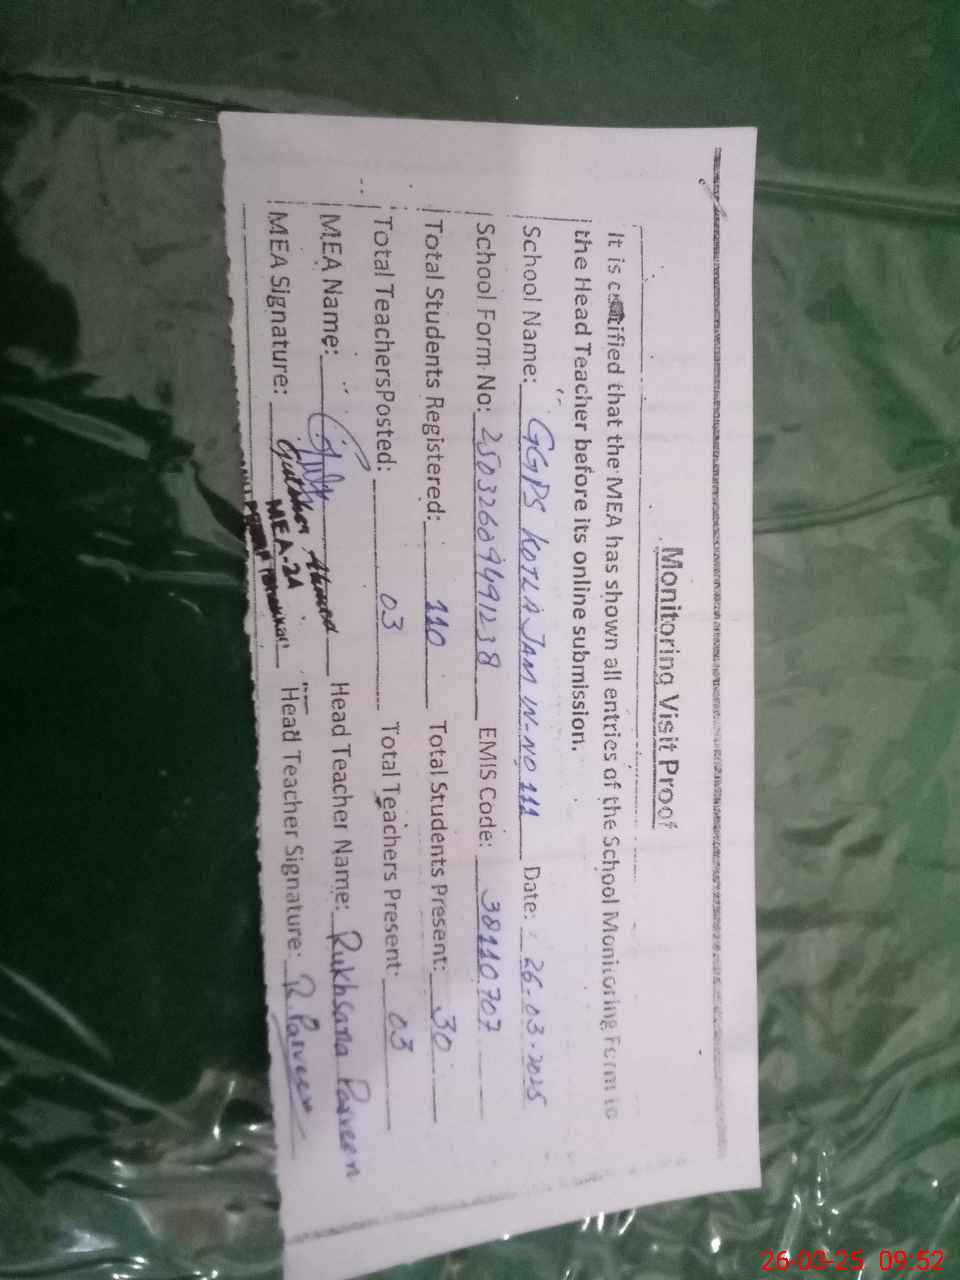 Monitoring Visit Proof
It is certified that the MEA has shown all entries of the School Monitoring Form to
the Head Teacher before its online submission.
School Name: GGPS KOTLA JAM W-NO 111 Date: 26.03.2025
School Form No: EMIS Code: 38110707
Total Students Registered: 110 Total Students Present: 30
Total TeachersPosted: 03 Total Teachers Present: 03
MEA Name: Head Teacher Name: Rukhsana Parveen
MEA Signature: Ahmed MEA-2A Head Teacher Signature: R.Parveen
26-03-25 09:52